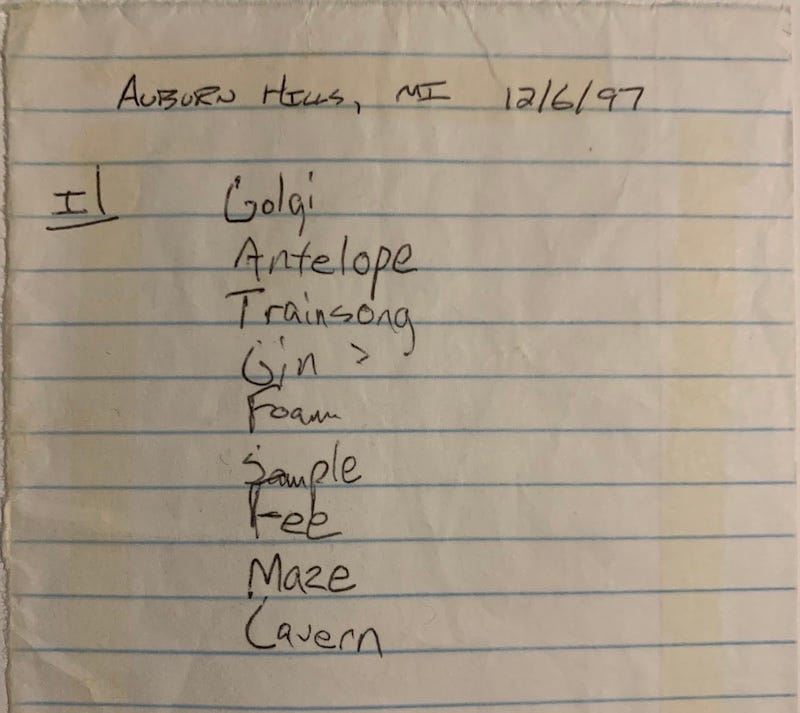 Auburn Hills, MI 12/6/97
I| Golgi
Antelope
Trainsong
Gin >
Foam
Sample
Fee
Maze
Cavern